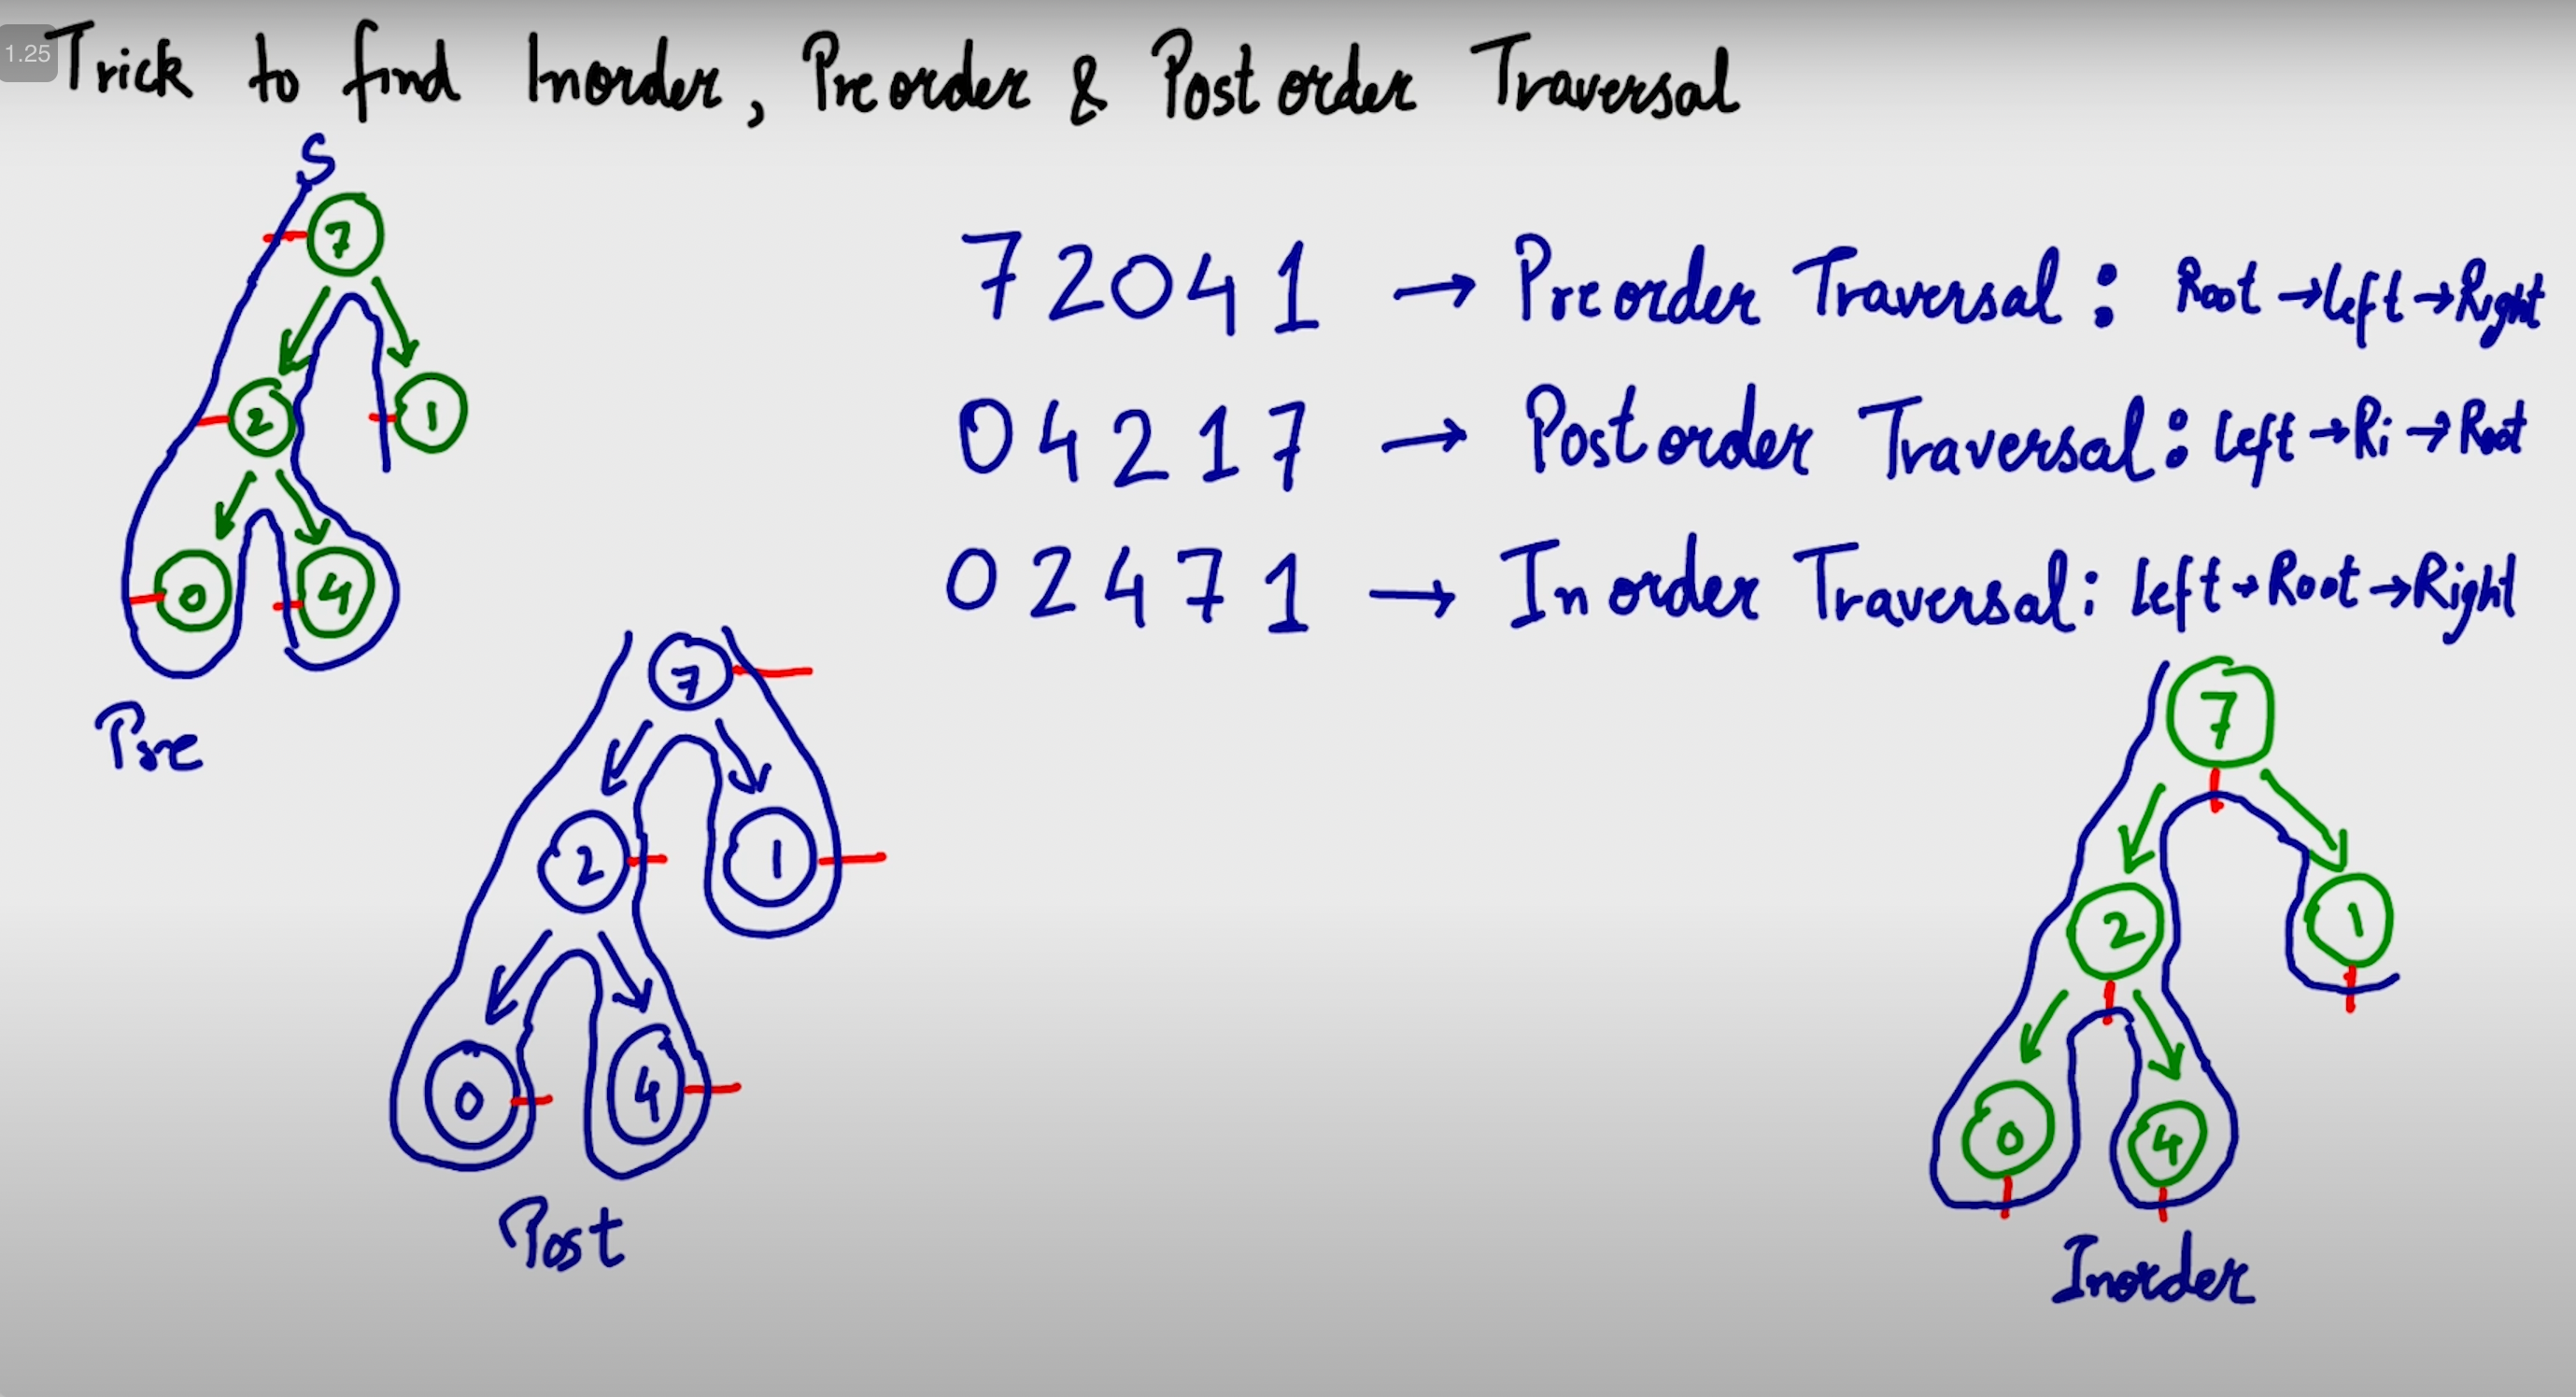 1.25
Trick to find Inorder, Preorder & Postorder Traversal
S
7
2
1
0
4
Pre
7 2 0 4 1 → Preorder Traversal : Root → Left → Right
0 4 2 1 7 → Postorder Traversal : Left → Ri → Root
0 2 4 7 1 → Inorder Traversal : Left → Root → Right
7
2
1
0
4
Post
7
2
1
0
4
Inorder